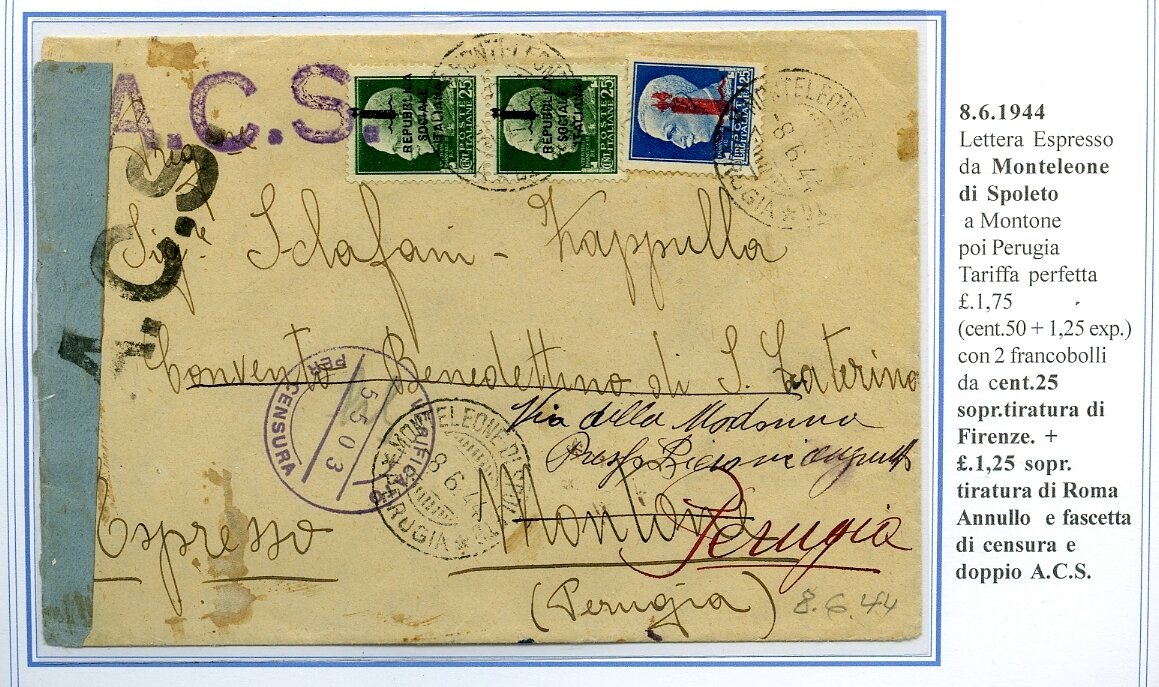 A.C.S.
A.C.S.
REPUBBLICA
SOCIALE
ITALIANA
CENT. 25
REPUBBLICA
SOCIALE
ITALIANA
CENT. 25
1,25
MONTELEONE
MONTELEONE
8.6.44
PERUGIA
Sig.ª Sclafani - Zappulla
Convento Benedettino di S. Caterina
Via della Madonna
Montone
Perugia
(Perugia)
Espresso
8.6.44
VERIFICATO PER CENSURA
5503
MONTELEONE DI SPOLETO
8.6.44
PERUGIA
8.6.1944
Lettera Espresso
da Monteleone
di Spoleto
a Montone
poi Perugia
Tariffa perfetta
£.1,75
(cent.50 + 1,25 exp.)
con 2 francobolli
da cent.25
sopr.tiratura di
Firenze. +
£.1,25 sopr.
tiratura di Roma
Annullo e fascetta
di censura e
doppio A.C.S.